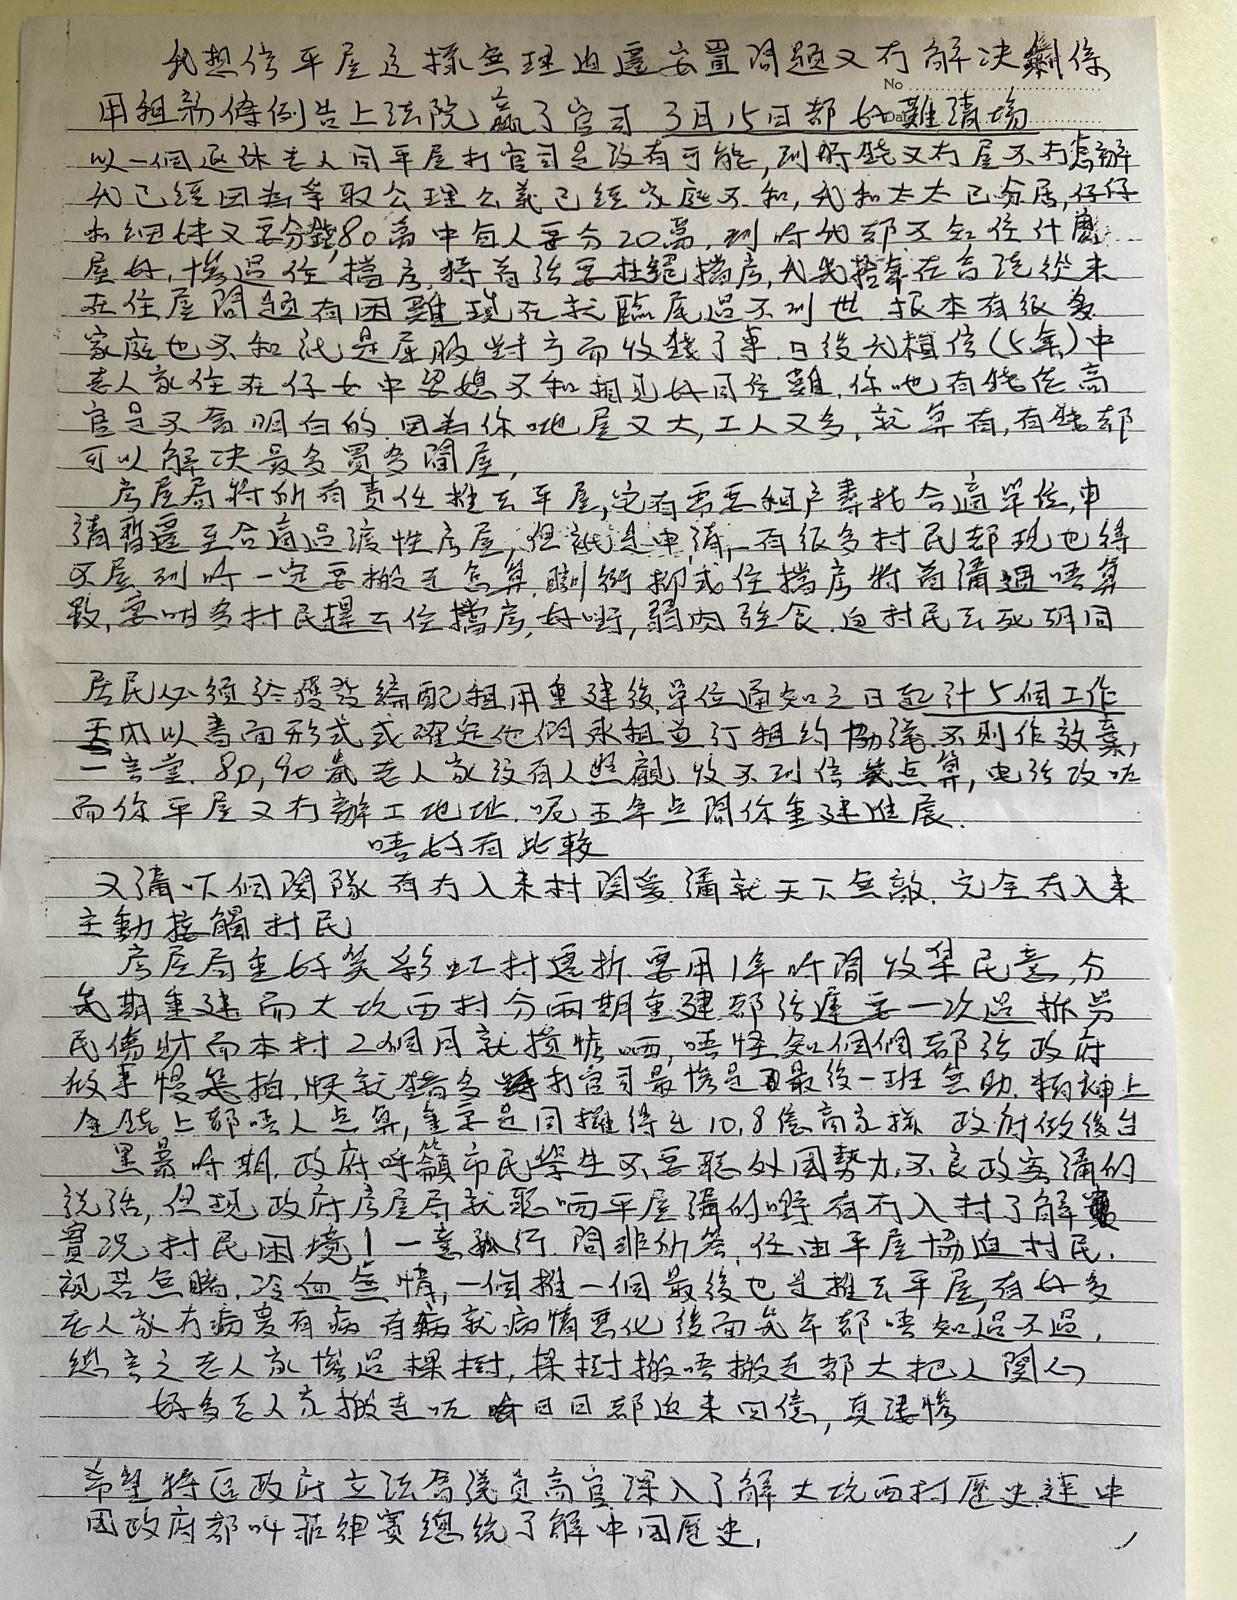 我想信平屋這樣無理迫遷安置問題又冇解決剩係
No
用租務條例告上法院贏了官司 3月15日都好難清場
以一個退休老人同平屋打官司是沒有可能，到時錢又冇屋又冇怎辦
我已經因為爭取公理公義已經家庭不和，我和太太已分居，仔仔
和細妹又要分錢80萬中每人要分20萬，到時我都不知住什麼
屋好，慘過住㓥房，特首話要杜絕㓥房，我先幾年在合院從來
在住屋問題有困難現在就臨尾過不到世 根本有很多
家庭也不和 是屈服對方而收錢了事，日後我相信(5年)中
老人家住在仔女中婆媳不和相見好同住難，你哋有錢佬高
官是不會明白的，因為你哋屋又大，工人又多，就算有，有錢都
可以解決最多買多間屋，
房屋局將所有責任推去平屋，它有需要租戶尋找合適單位，申
請暫遷至合適過渡性房屋，但祇是申請，有很多村民都現也得
不屋到時一定要搬走怎算，瞓街抑或住㓥房特首講過唔算
數，要咁多村民攆去住㓥房，好嘢，弱肉強食，迫村民去死胡同
居民必須於獲發編配租用重建後單位通知之日起計5個工作
天內以書面形式或確定他們承租並訂租約協議，不則作效棄，
一言堂，80，90歲老人家沒有人照顧，收不到信點算，電話改咗
而你平屋又冇辦工地址，呢五年點問你重建進展，
唔好有比較
又講吓個關隊有冇入來村關愛講就天下無敵，完全冇入來
主動接觸村民
房屋局重好笑彩虹村逐拆要用1年時間收集民意，分
幾期重建而大坑西村分兩期重建都話遲要一次過拆勞
民傷財而本村2個月就搞掂晒，唔怪知個個都話政府
做事慢幾拍，快就錯多 打官司最慘是最後一班無助，精神上
金錢上都唔人點算，重要是同攤得出10.8億商家搽 政府做後台
黑暴時期，政府呼籲市民學生不要聽外國勢力，不良政客講的
說話，但現政府房屋局就聽晒平屋講的嘢有冇入村了解
實況，村民困境！一意孤行，問非所答，任由平屋協迫村民，
視若無睹，冷血無情，一個推一個最後也是推去平屋，有好多
老人家冇病變有病 有病就病情惡化後而幾年都唔知過不過，
總言之老人家慘過棵樹，棵樹搬唔搬走都大把人關心
好多老人家搬走咗 日日都返來回憶，真淒慘
希望特區政府立法會議員高官深入了解大坑西村歷史，連中
國政府都叫菲律賓總統了解中國歷史，